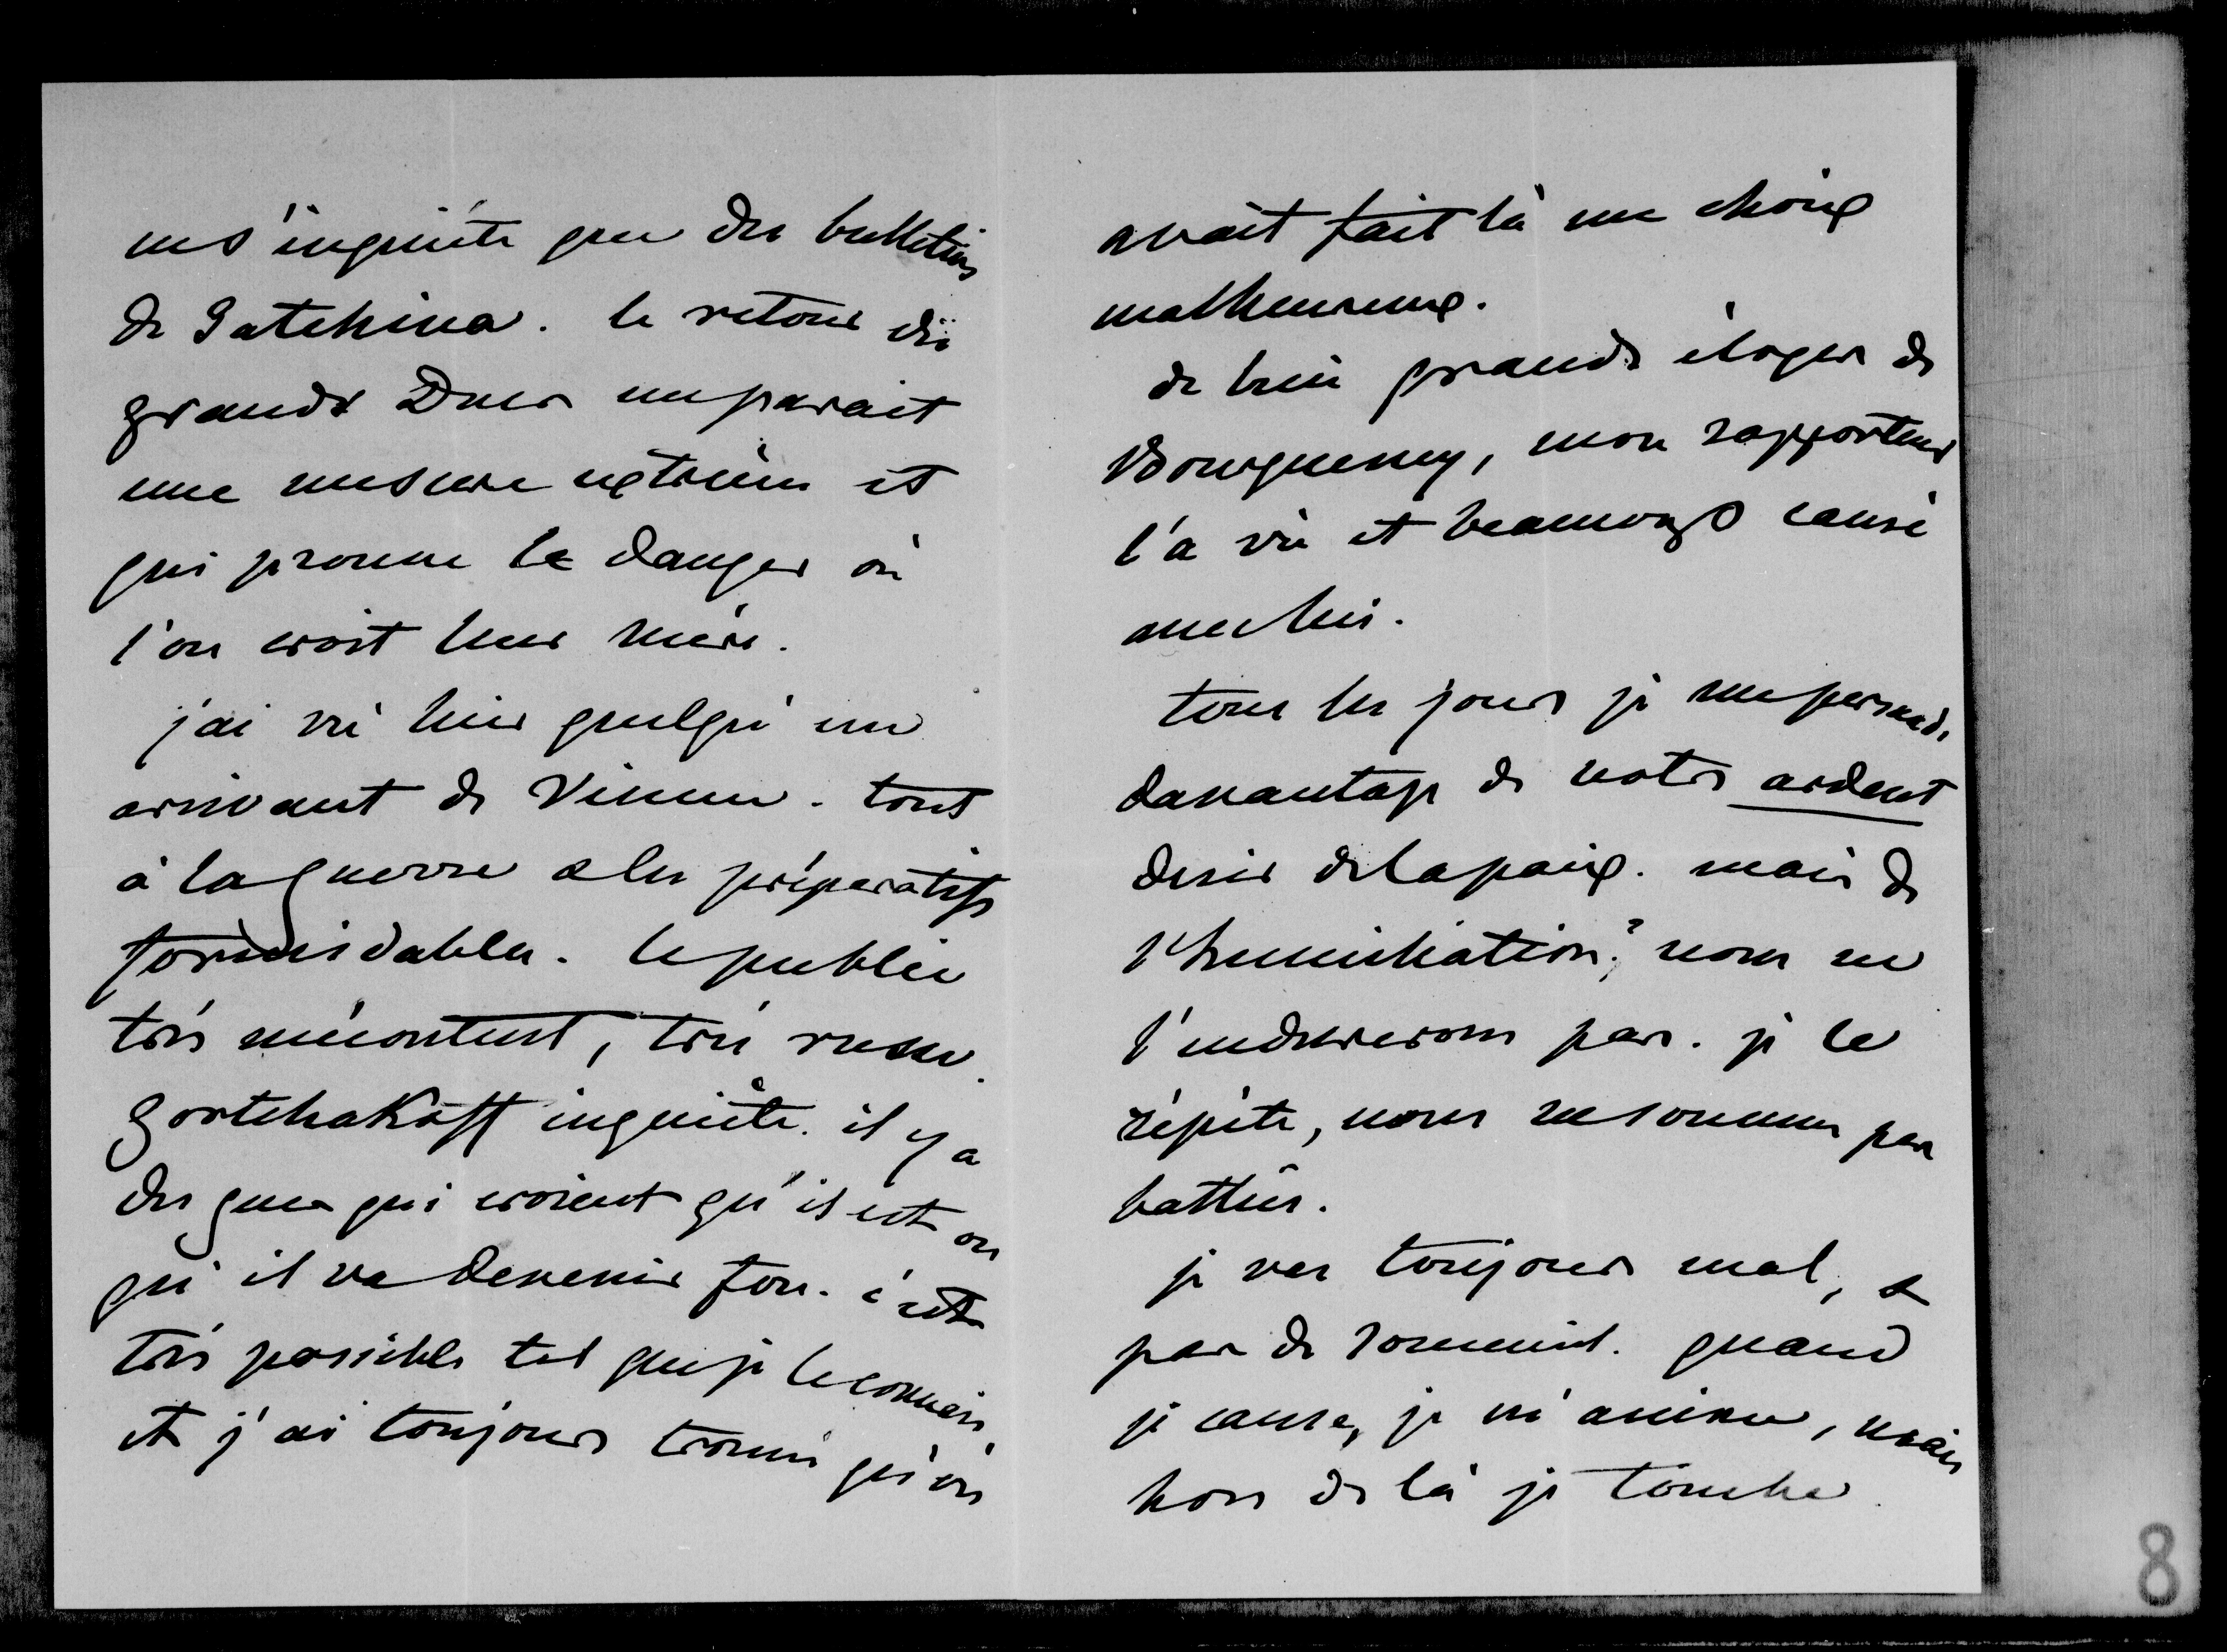 ne s'inquiète que des bulletins
de Gatchina. le retour des
grands Ducs me parait
une mesure extrême et
qui prouve le danger où
l'on croit leur mère.
j'ai vu hier quelqu'un
arrivant de Vienne. tout
à la guerre & les préparatifs
formidables. le public
très mécontent, très russe.
Gortchakoff inquiète. il y a
des gens qui croient qu'il est ou
qu'il va devenir fou. c'est
très possible tel que je le connais
et j'ai toujours trouvé qu'on
avait fait là un choix
malheureux.
de bien grands éloges de
Bourqueney, mon rapporteur
l'a vu et beaucoup causé
avec lui.
tous les jours je me persuade
davantage de votre ardent
desir de la paix. mais de
l'humiliation? nous ne
l'endurerons pas. je le
répète, nous ne sommes pas
battus.
je vas toujours mal, &
pas de sommeil. quand
je cause, je m'anime, mais
hors de là je tombe.
8